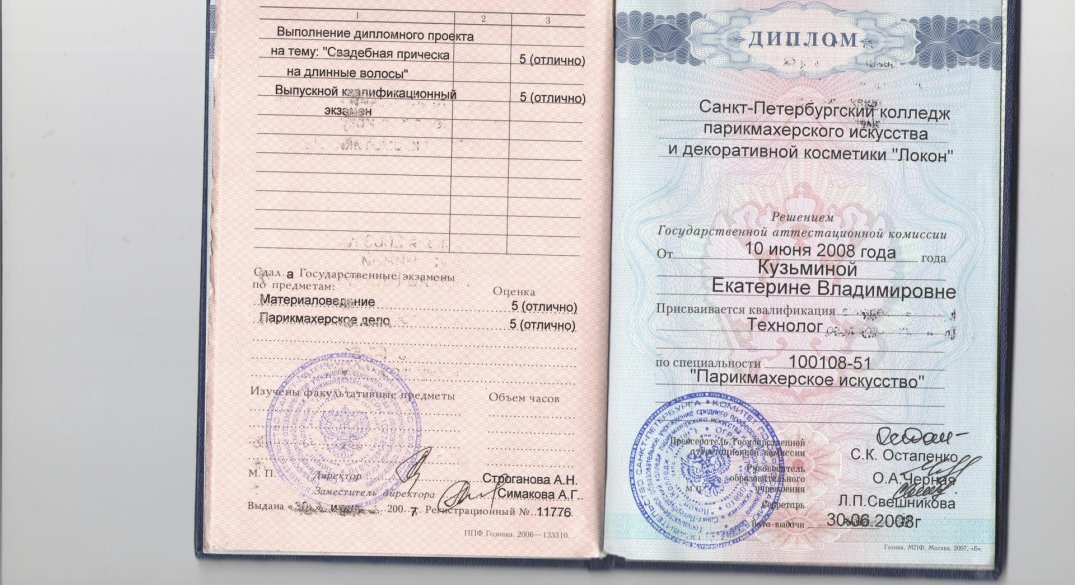 1 2 3
Выполнение дипломного проекта
на тему: "Свадебная прическа
5 (отлично)
на длинные волосы"
Выпускной квалификационный
5 (отлично)
экзамен
Сдал а Государственные экзамены
по предметам:
Оценка
Материаловедение
5 (отлично)
Парикмахерское дело
5 (отлично)
Изучены факультативные предметы
Объем часов
М. П.
Директор
Строганова А.Н.
Заместитель директора
Симакова А.Г.
Выдана « 200 7. Регистрационный №. 11776
ППФ Гознака. 2006—133310.
ДИПЛОМ
Санкт-Петербургский колледж
парикмахерского искусства
и декоративной косметики "Локон"
Решением
Государственной аттестационной комиссии
От 10 июня 2008 года года
Кузьминой
Екатерине Владимировне
Присваивается квалификация
Технолог
по специальности 100108-51
"Парикмахерское искусство"
Председатель Государственной
аттестационной комиссии
С.К. Остапенко
Руководитель
образовательного
учреждения
О.А.Черная
Секретарь
Л.П.Свешникова
Дата выдачи 30.06.2008г
Гознак, МПФ, Москва, 2007, «Б».